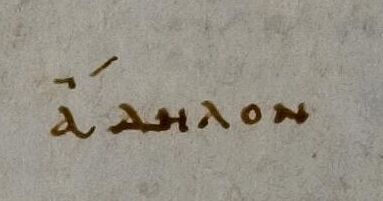 ἄδηλον